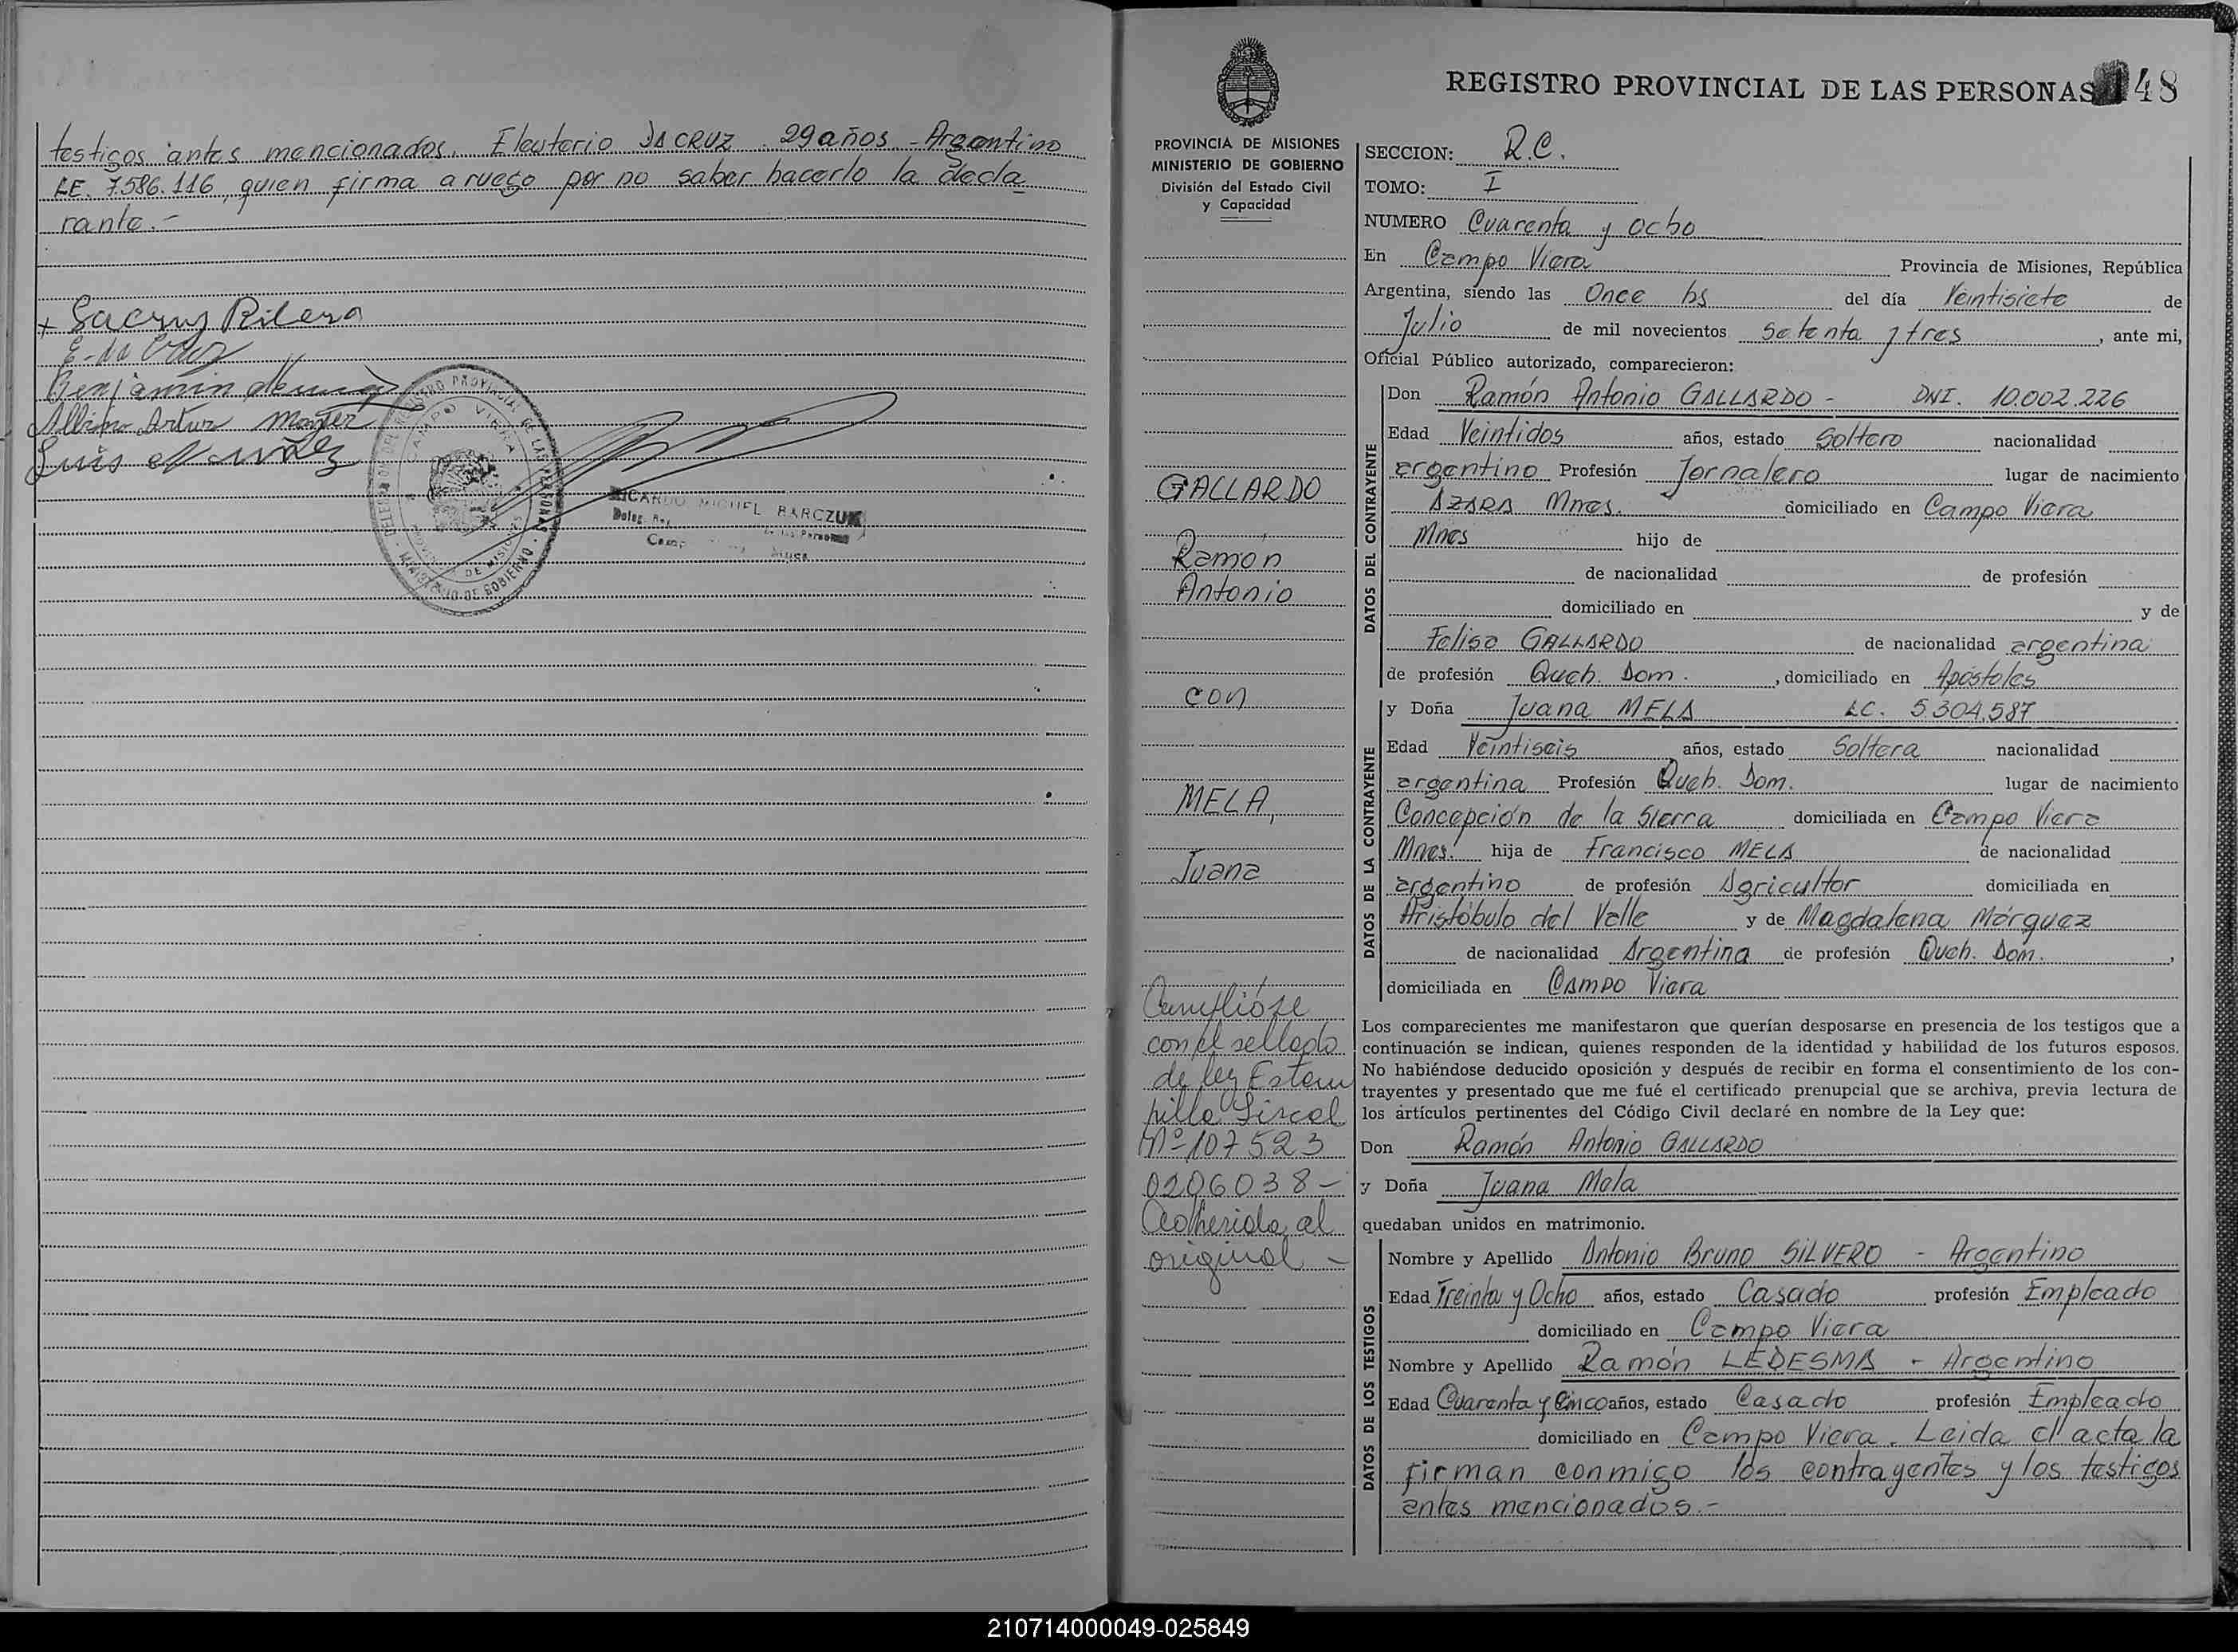 testigos antes mencionados. Eleuterio DA CRUZ. 29 años - Argentino
LE. 7.586.116, quien firma a ruego por no saber hacerlo la decla
rante.-
E. da Cruz
Benjamin
Albino Artur
Luis
DELEGACION DEL REGISTRO PROVINCIAL DE LAS PERSONAS
CAMPO VIERA
PROVINCIA DE MISIONES
MINISTERIO DE GOBIERNO
RICARDO MIGUEL BARCZUK
PROVINCIA DE MISIONES
MINISTERIO DE GOBIERNO
División del Estado Civil
y Capacidad
GALLARDO
Ramón
Antonio
con
MELA,
Juana
Cumplióse
con el sellado
de ley Estam
pilla Fiscal
Nº 107523
0206038-
Adherida al
original -
REGISTRO PROVINCIAL DE LAS PERSONAS 148
SECCION: R.C.
TOMO: I
NUMERO Cuarenta y ocho
En Campo Viera Provincia de Misiones, República
Argentina, siendo las Once hs del día Veintisiete de
Julio de mil novecientos setenta y tres, ante mi,
Oficial Público autorizado, comparecieron:
DATOS DEL CONTRAYENTE
Don Ramón Antonio GALLARDO - DNI. 10.002.226
Edad Veintidos años, estado Soltero nacionalidad
argentino Profesión Jornalero lugar de nacimiento
AZARA Mnes. domiciliado en Campo Viera
Mnes hijo de
de nacionalidad de profesión
domiciliado en y de
Felisa GALLARDO de nacionalidad argentina
de profesión Queh. Dom. , domiciliado en Apóstoles
DATOS DE LA CONTRAYENTE
y Doña Juana MELA LC. 5.304.587
Edad Veintiseis años, estado Soltera nacionalidad
argentina Profesión Queh. Dom. lugar de nacimiento
Concepción de la Sierra domiciliada en Campo Viera
Mnes. hija de Francisco MELA de nacionalidad
argentino de profesión Agricultor domiciliada en
Aristóbulo del Valle y de Magdalena Márquez
de nacionalidad Argentina de profesión Queh. Dom. ,
domiciliada en Campo Viera
Los comparecientes me manifestaron que querían desposarse en presencia de los testigos que a
continuación se indican, quienes responden de la identidad y habilidad de los futuros esposos.
No habiéndose deducido oposición y después de recibir en forma el consentimiento de los con-
trayentes y presentado que me fué el certificado prenupcial que se archiva, previa lectura de
los artículos pertinentes del Código Civil declaré en nombre de la Ley que:
Don Ramón Antonio GALLARDO
y Doña Juana Mela
quedaban unidos en matrimonio.
DATOS DE LOS TESTIGOS
Nombre y Apellido Antonio Bruno SILVERO - Argentino
Edad Treinta y Ocho años, estado Casado profesión Empleado
domiciliado en Campo Viera
Nombre y Apellido Ramón LEDESMA - Argentino
Edad Cuarenta y Cinco años, estado Casado profesión Empleado
domiciliado en Campo Viera. Leida el acta la
firman conmigo los contrayentes y los testigos
antes mencionados.-
210714000049-025849